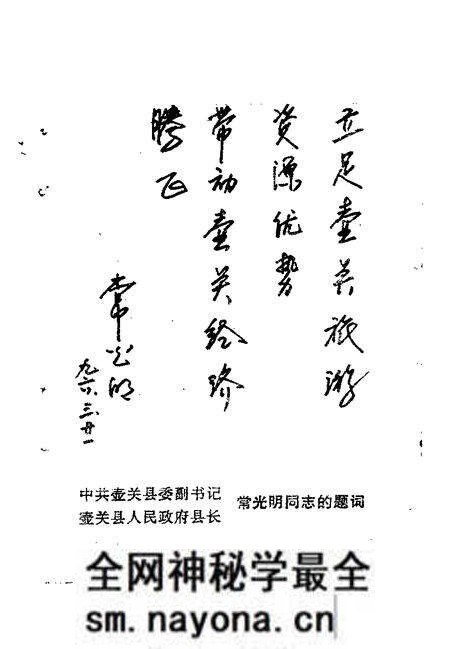 立足壶关旅游
资源优势
带动壶关经济
腾飞
常光明
九六.三.廿一
中共壶关县委副书记
壶关县人民政府县长
常光明同志的题词
全网神秘学最全
sm.nayona.cn